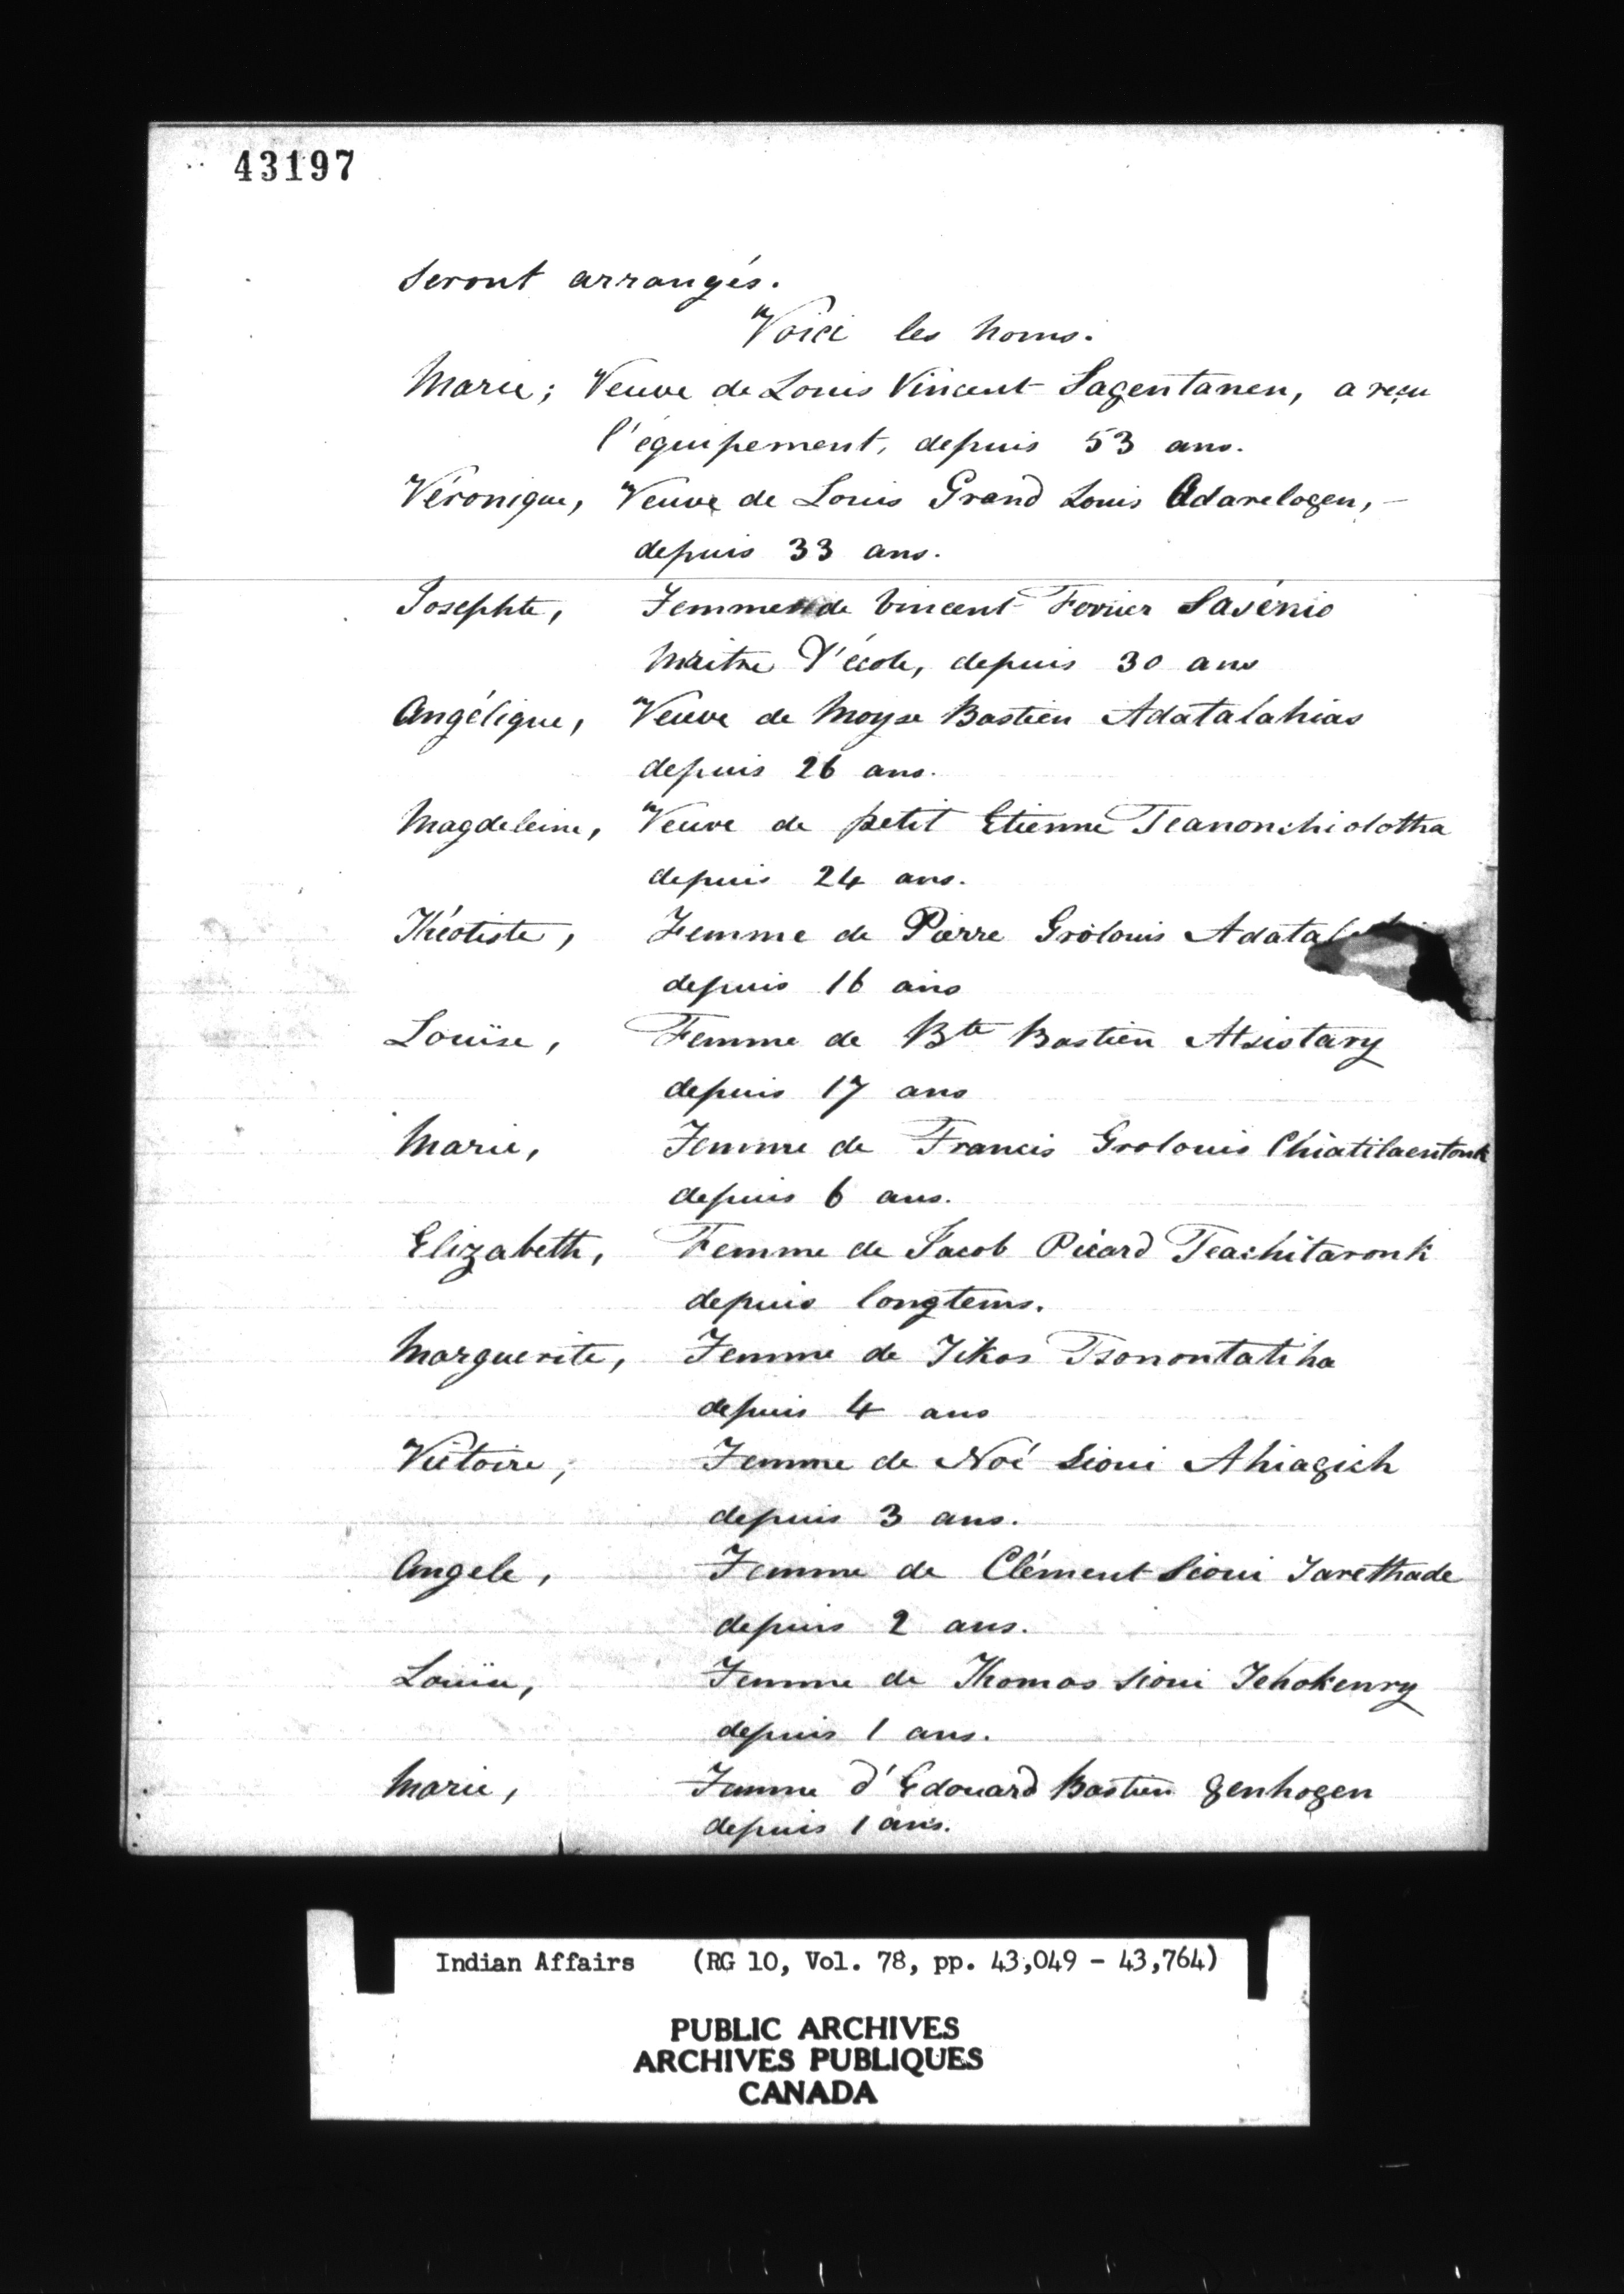 43197
seront arrangés.
Voici les noms.
Marie; Veuve de Louis Vincent Sagentanen, a reçu
l'équipement, depuis 53 ans.
Véronique, Veuve de Louis Grand Louis Adarelogen, -
depuis 33 ans.
Josephte, Femme de Vincent Ferrier Sasénio
Maitre d'école, depuis 30 ans
Angélique, Veuve de Moyse Bastien Adatalahias
depuis 26 ans.
Magdeleine, Veuve de petit Etienne Teanonchiolotha
depuis 24 ans.
Théotiste, Femme de Pierre Grolouis
depuis 16 ans
Louïse, Femme de Bte Bastien Atsistary
depuis 17 ans
Marie, Femme de Francis Grolouis Chiatilaentonk
depuis 6 ans.
Elizabeth, Femme de Jacob Picard Teachitaronk
depuis longtems.
Marguerite, Femme de Tikos Tsonontatiha
depuis 4 ans
Victoire, Femme de Noé Sioui Ahiagich
depuis 3 ans.
Angele, Femme de Clément Sioui Tarethade
depuis 2 ans.
Louïse, Femme de Thomas Sioui Tehokenry
depuis 1 ans.
Marie, Femme d'Edouard Bastien genhogen
depuis 1 ans.
Indian Affairs (RG 10, Vol. 78, pp. 43,049 - 43,764)
PUBLIC ARCHIVES
ARCHIVES PUBLIQUES
CANADA